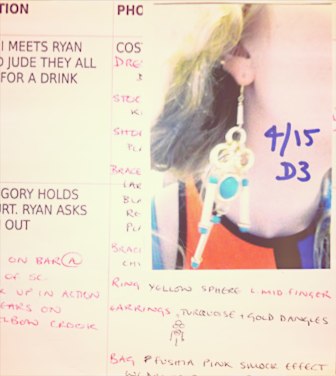 TION
PHO
I MEETS RYAN
JUDE THEY ALL
FOR A DRINK
COS
DRE
SHOE
BRACE
LAR
BLA
RE
PL
4/15
D3
GORY HOLDS
URT. RYAN ASKS
OUT
BRAC
ON BAR A
OF SC.
UP IN ACTION
EARS ON
ELBOW CROOK
RING YELLOW SPHERE L MID FINGER
EARRINGS, TURQUOISE + GOLD DANGLES
BAG FUSHIA PINK SMOCK EFFECT